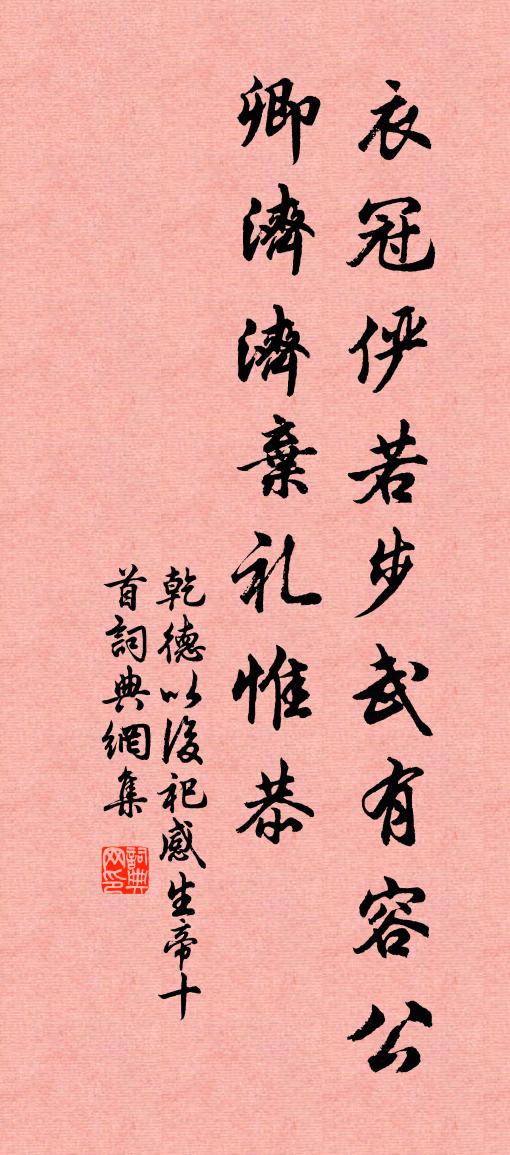 衣冠俨若步武有容公
卿濟濟棄礼惟恭
乾德以後祀感生帝十
首詞典網集
詞典
网印